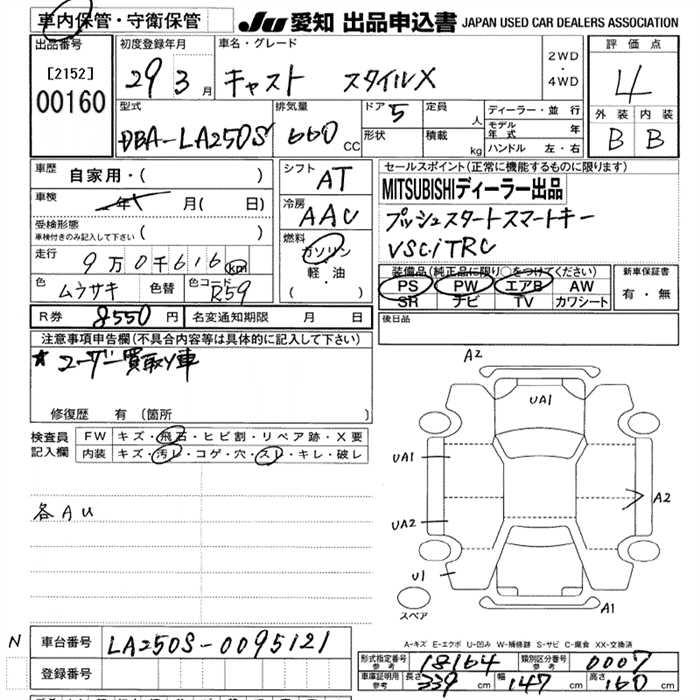 車内保管・守衛保管
JU 愛知 出品申込書 JAPAN USED CAR DEALERS ASSOCIATION
出品番号
[2152]
00160
初度登録年月
29 3月
車名・グレード
キャスト スタイルX
2WD
・
4WD
評価点
4
外装 内装
B B
型式
DBA-LA250S
排気量
660 CC
ドア
5
形状
定員
人
積載
kg
ディーラー・並行
モデル年式 年
ハンドル 左・右
車歴
自家用・( )
車検
年 月( 日)
受検形態
車検付きのみ記入して下さい ( )
走行
9万0千616km
色
ムラサキ
色替
色コード
R59
シフト
AT
冷房
AAC
燃料
ガソリン
軽・油
( )
セールスポイント(正常に機能するものに限ります)
MITSUBISHIディーラー出品
プッシュスタートスマートキー
VSC.iTRC
装備品(純正品に限り○をつけてください)
PS PW エアB AW
SR ナビ TV カワシート
新車保証書
有・無
R券 8550円
名変通知期限 月 日
後日品
注意事項申告欄(不具合内容等は具体的に記入して下さい)
★ユーザー買取り車
修復歴 有(箇所
検査員
記入欄
FW キズ・飛石・ヒビ割・リペア跡・X要
内装 キズ・汚レ・コゲ・穴・スレ・キレ・破レ
各AU
A2
UA1
UA1
UA2
U1
A2
A1
スペア
A-キズ E-エクボ U-凹み W-補修跡 S-サビ C-腐食 XX-交換済
N
車台番号 LA250S-0095121
登録番号
形式指定番号
参考
18164
類別区分番号
参考
0007
車庫証明用
参考
長さ 339cm 幅 147cm 高さ 160cm